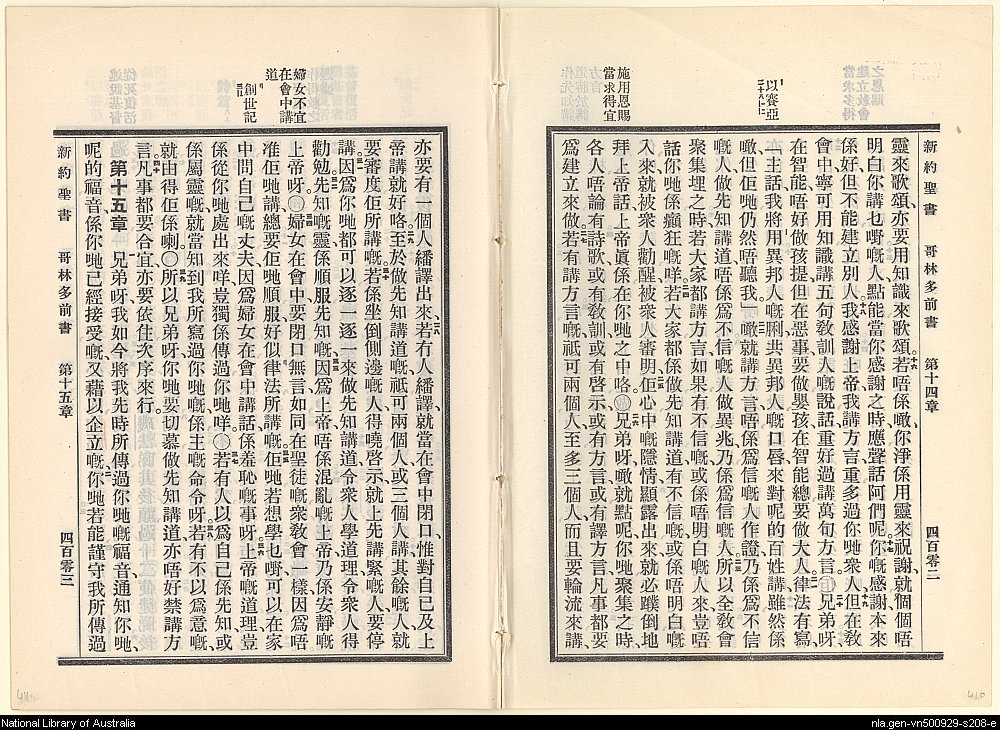 新約聖書 哥林多前書 第十四章 四百零二
以賽亞
施用恩賜
當求得宜
靈來歌頌、亦要用知識來歌頌。若唔係噉、你淨係用靈來祝謝、就個個唔
明白你講乜嘢嘅人、點能當你感謝之時、應聲話阿們呢。你嘅感謝本來
係好、但不能建立別人。我感謝上帝、我講方言、重多過你哋衆人。但在敎
會中、寧可用知識講五句敎訓人嘅說話、重好過講萬句方言。兄弟呀、
在智能唔好做孩提、但在惡事要做嬰孩、在智能總要做大人。律法有寫、
「主話、我將用異邦人嘅脷、共異邦人嘅口唇、來對呢的百姓講、雖然係
噉、但佢哋仍然唔聽我」噉就講方言、唔係爲信嘅人作證、乃係爲不信
嘅人、做先知講道、唔係爲不信嘅人做異兆、乃係爲信嘅人。所以全敎會
聚集埋之時、若大家都講方言、如果有不信嘅、或係唔明白嘅人來、豈唔
話你哋係癲狂嘅咩。若大家都係做先知講道、有不信嘅、或係唔明白嘅
入來、就被衆人勸醒、被衆人審明、佢心中嘅隱情顯露出來、就必蹼倒地
拜上帝、話上帝眞係在你哋之中咯。兄弟呀、噉就點呢、你哋聚集之時、
各人唔論有詩歌、或有敎訓、或有啓示、或有方言、或有譯方言、凡事都要
爲建立來做。若有講方言嘅、祗可兩個人、至多三個人、而且要輪流來講、
婦女不宜
在會中講
道
創世記
亦要有一個人繙譯出來。若有人繙譯、就當在會中閉口、惟對自己及上
帝講就好咯。至於做先知講道嘅、祗可兩個人、或三個人講、其餘嘅人、就
要審度佢所講嘅。若係坐倒側邊嘅人、得曉啓示、就上先講緊嘅人、要停
講。因爲你哋都可以逐一逐一來做先知講道、令衆人學道理、令衆人得
勸勉。先知嘅靈、係順服先知嘅。因爲上帝唔係混亂嘅上帝、乃係安靜嘅
上帝呀。婦女在會中要閉口無言、如同在聖徒嘅衆敎會一樣。因爲唔
准佢哋講、總要佢哋順服、好似律法所講嘅。佢哋若想學乜嘢、可以在家
中問自己嘅丈夫、因爲婦女在會中講話、係羞恥嘅事呀。上帝嘅道理豈
係從你哋處出來咩、豈獨係傳過你哋咩。若有人以爲自己係先知、或
係屬靈嘅、就當知到我所寫過你哋嘅、係主嘅命令呀。若有不以爲意嘅、
就由得佢係喇。所以兄弟呀、你哋要切慕做先知講道、亦唔好禁講方
言。凡事都要合宜、亦要依住次序來行。
第十五章 兄弟呀、我如今將我先時所傳過你哋嘅福音、通知你哋、
呢的福音、係你哋已經接受嘅、又藉以企立嘅。你哋若能謹守我所傳過
新約聖書 哥林多前書 第十五章 四百零三
National Library of Australia
nla.gen-vn500929-s208-e